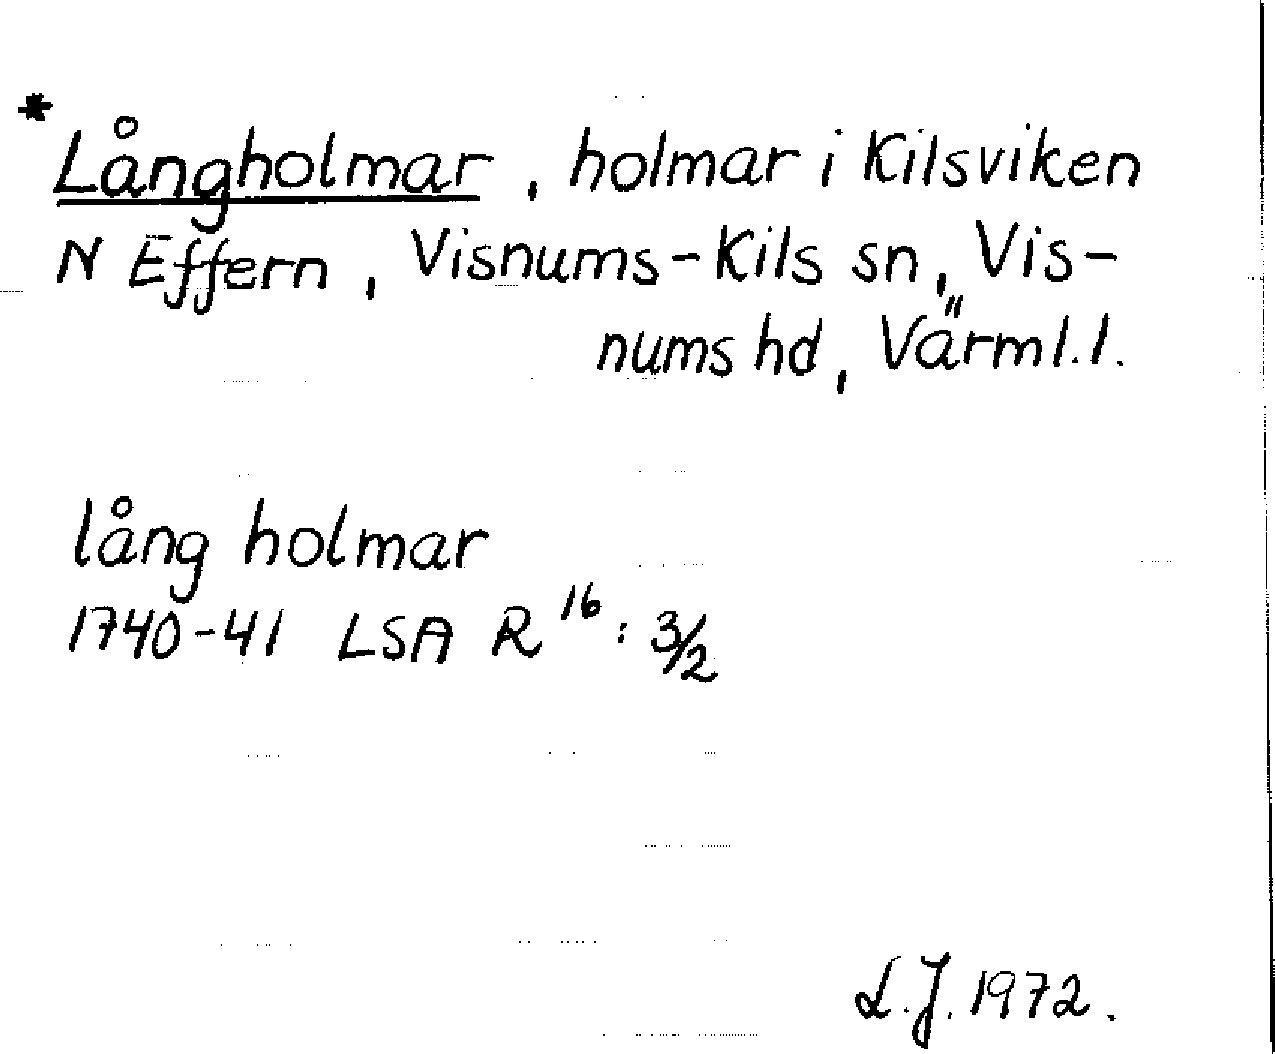 *Långholmar, holmar i Kilsviken
N Effern, Visnums-Kils sn, Vis-
nums hd, Värml.l.
lång holmar
1740-41 LSA R 16: 3/2
L.J. 1972.